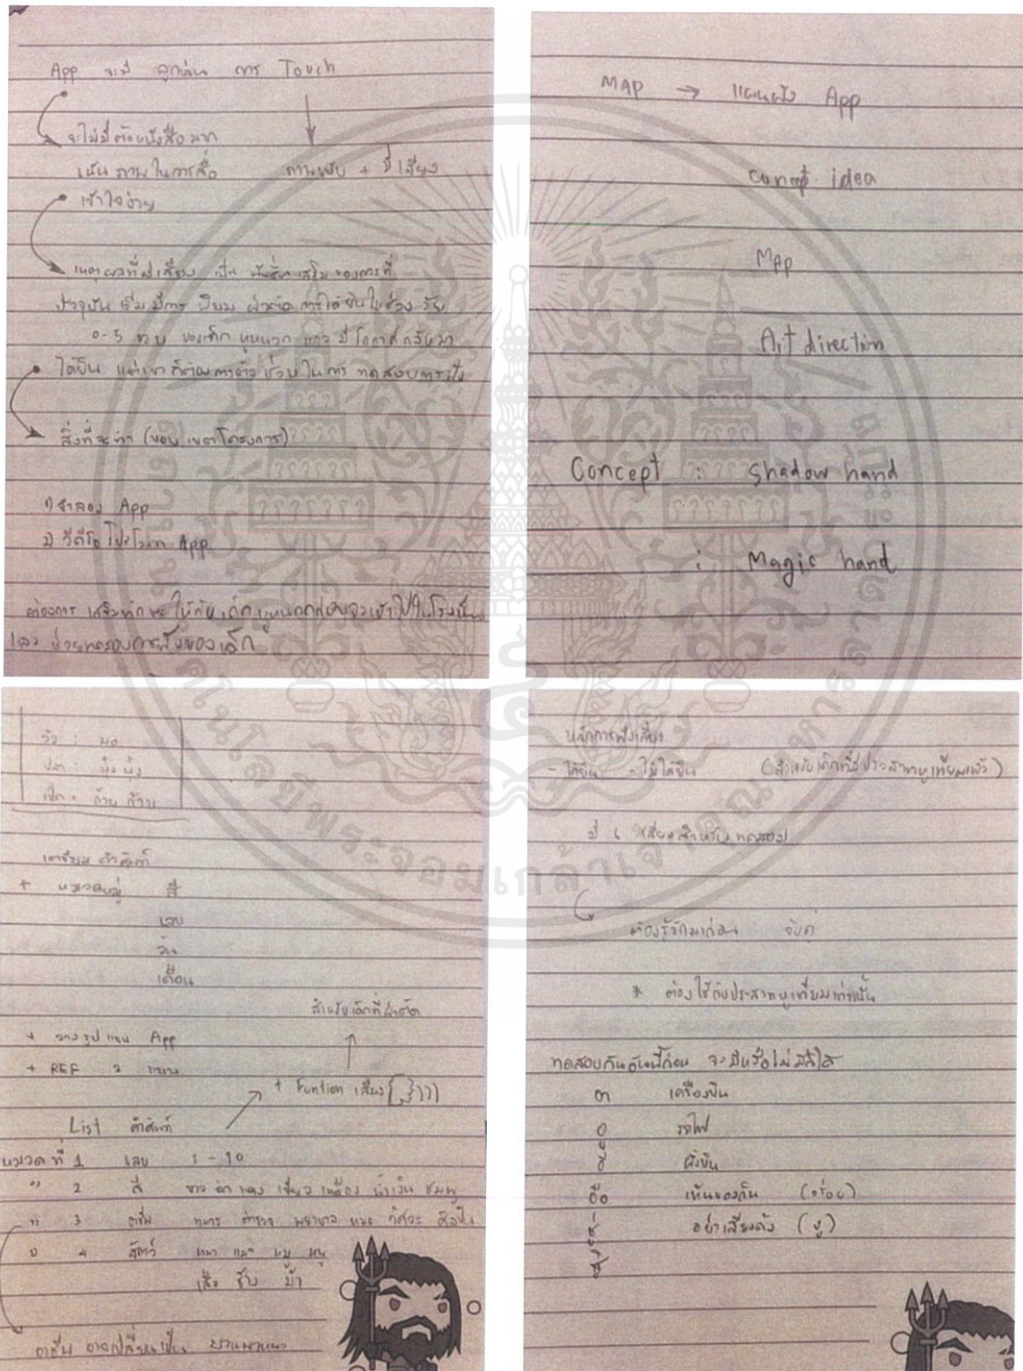 App จะมี ลูกเล่น การ Touch
จะไม่มีตัวหนังสือมาก
เน้น ภาพในการสื่อ ภาพขยับ + มีเสียง
เข้าใจง่าย
เหตุผลที่มีเสียง เป็น เสริม ของการที่
ปัจจุบัน เริ่ม มีการ นิยม ผ่าตัด การได้ยิน ในช่วง วัย
0-5 ขวบ ของเด็ก หูหนวก และ มี โอกาสกลับมา
ได้ยิน แต่เขา ก็ต้องการตัว ช่วย ในการ ทดสอบการฟัง
สิ่งที่จะทำ (ขอบเขตโครงการ)
1) จำลอง App
2) วีดีโอ โปรโมท App
ต้องการ เสริมทักษะ ให้กับ เด็กหูหนวกก่อนจะเข้าไปในโรงเรียน
และ ช่วยทดสอบการฟังของเด็ก
MAP → แผนผัง App
idea
Map
Art direction
Concept : Shadow hand
: Magic hand
วัว : มอ
ปลา :
เป็ด - ก้าบ ก้าบ
เตรียม คำศัพท์
+ หมวดหมู่ สี
เลข
วัน
เดือน
สำหรับเด็กที่ผ่าตัด
+ วางรูปแบบ App
+ REF 2 แบบ
+ Funtion เสียง
List คำศัพท์
หมวดที่ 1 เลข 1 - 10
" 2 สี ขาว ดำ แดง เขียว เหลือง น้ำเงิน ชมพู
" 3 อาชีพ ทหาร ตำรวจ พยาบาล หมอ วิศวะ ศิลปิน
" 4 สัตว์ หมา แมว หมู หนู
เสือ ช้าง ม้า
อาชีพ อาจเปลี่ยนเป็น ยานพาหนะ
หลักการฟังเสียง
- ได้ยิน - ไม่ได้ยิน (สำหรับเด็กที่ใส่ประสาทหูเทียมแล้ว)
มี 6 เสียงสำหรับทดสอบ
ต้องรู้จักมาก่อน จับคู่
* ต้องใช้กับประสาทหูเทียมเท่านั้น
ทดสอบกันอันนี้ก่อน จะมีหรือไม่มีก็ได้
อา เครื่องบิน
อู รถไฟ
อี ผีเสื้อ
อือ เห็นของกิน (อร่อย)
ชู่ อย่าเสียงดัง